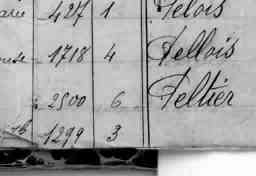 487 1 Pelois
1718 4 Pellois
2500 6 Peltier
16 1299 3